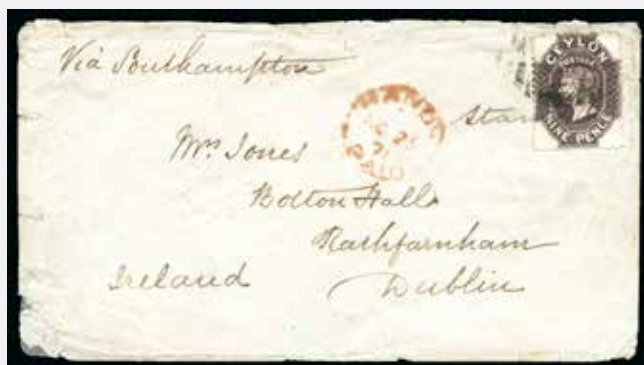 Viâ Southampton
CEYLON
POSTAGE
NINE PENCE
PAID
Mrs Jones
Bolton Hall
Rathfarnham
Ireland
Dublin